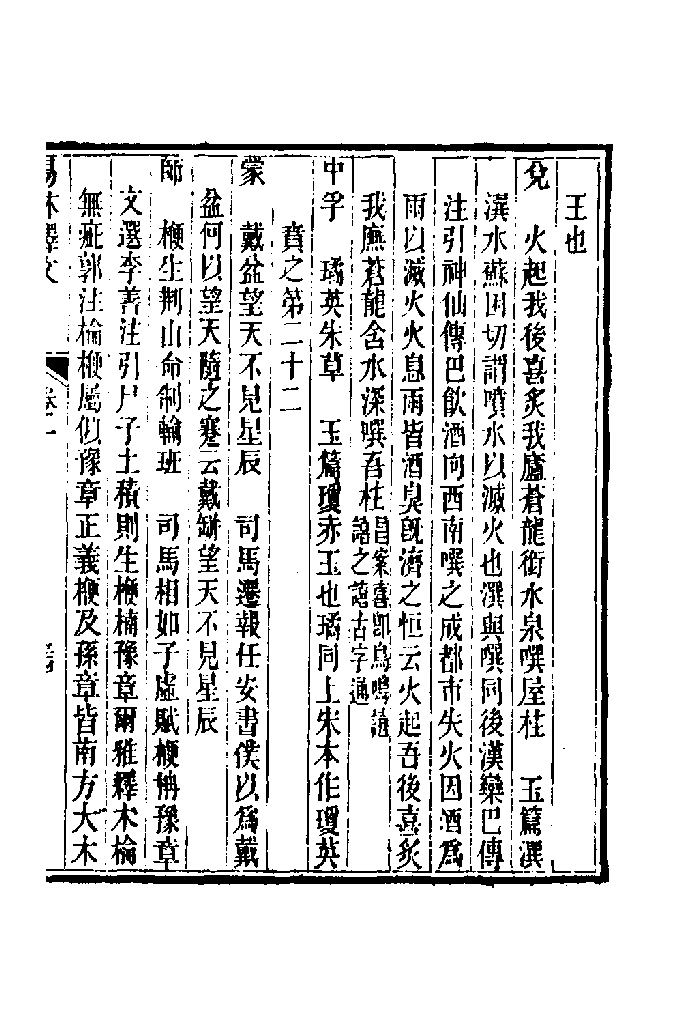 王也
兌　火起我後喜炙我廬蒼龍銜水泉噀屋柱　玉篇潠
潠水蘇困切謂噴水以滅火也潠與噀同後漢欒巴傳
注引神仙傳巴飲酒向西南噀之成都市失火因酒爲
雨以滅火火息雨皆酒臭旣濟之恒云火起吾後喜炙
我廡蒼龍含水深噀吾柱
中孚　璚英朱草　玉篇瓊赤玉也璚同上宋本作瓊英
賁之第二十二
蒙　戴盆望天不見星辰　司馬遷報任安書僕以爲戴
盆何以望天隨之蹇云戴缾望天不見星辰
師　楩生荆山命制輸班　司馬相如子虛賦楩柟豫章
文選李善注引尸子土積則生楩楠豫章爾雅釋木棆
無疵郭注棆楩屬似豫章正義楩及豫章皆南方大木
易林釋文